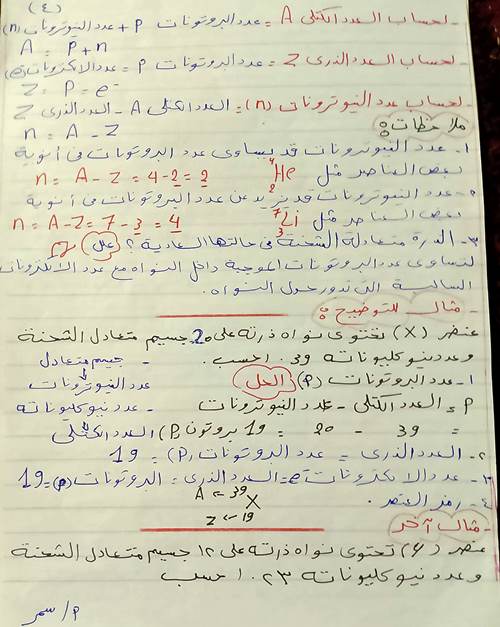 (٤)
- لحساب العدد الكتلى A = عدد البروتونات P + عدد النيوترونات (n)
A = P + n
- لحساب العدد الذرى Z = عدد البروتونات P = عدد الالكترونات (e)
Z = P = e⁻
- لحساب عدد النيوترونات (n) = العدد الكتلى A - العدد الذرى Z
n = A - Z
ملاحظات:
١- عدد النيوترونات قد يساوى عدد البروتونات فى أنوية
بعض العناصر مثل ⁴₂He n = A - Z = 4 - 2 = 2
٢- عدد النيوترونات قد يزيد عن عدد البروتونات فى أنوية
بعض العناصر مثل ⁷₃Li n = A - Z = 7 - 3 = 4
٣- الذرة متعادلة الشحنة فى حالتها العادية؟ علل
لتساوى عدد البروتونات الموجبة داخل النواه مع عدد الالكترونات
السالبة التى تدور حول النواه.
مثال للتوضيح:
عنصر (X) تحتوى نواه ذرته على 20 جسيم متعادل الشحنة
وعدد نيوكليوناته 39. احسب.
- جسيم متعادل
الحل
١- عدد البروتونات (P)
عدد النيوترونات
P = العدد الكتلى - عدد النيوترونات
- عدد نيوكليوناته
= 39 - 20 = 19 بروتون (P)
العدد الكتلى
٢- العدد الذرى = عدد البروتونات (P) = 19
٣- عدد الالكترونات e⁻ = العدد الذرى = البروتونات (P) = 19
٤- رمز العنصر.
A = 39
X
Z = 19
- مثال آخر
عنصر (Y) تحتوى نواه ذرته على ١٢ جسيم متعادل الشحنة
وعدد نيوكليوناته ٢٣. احسب
م/ سمر